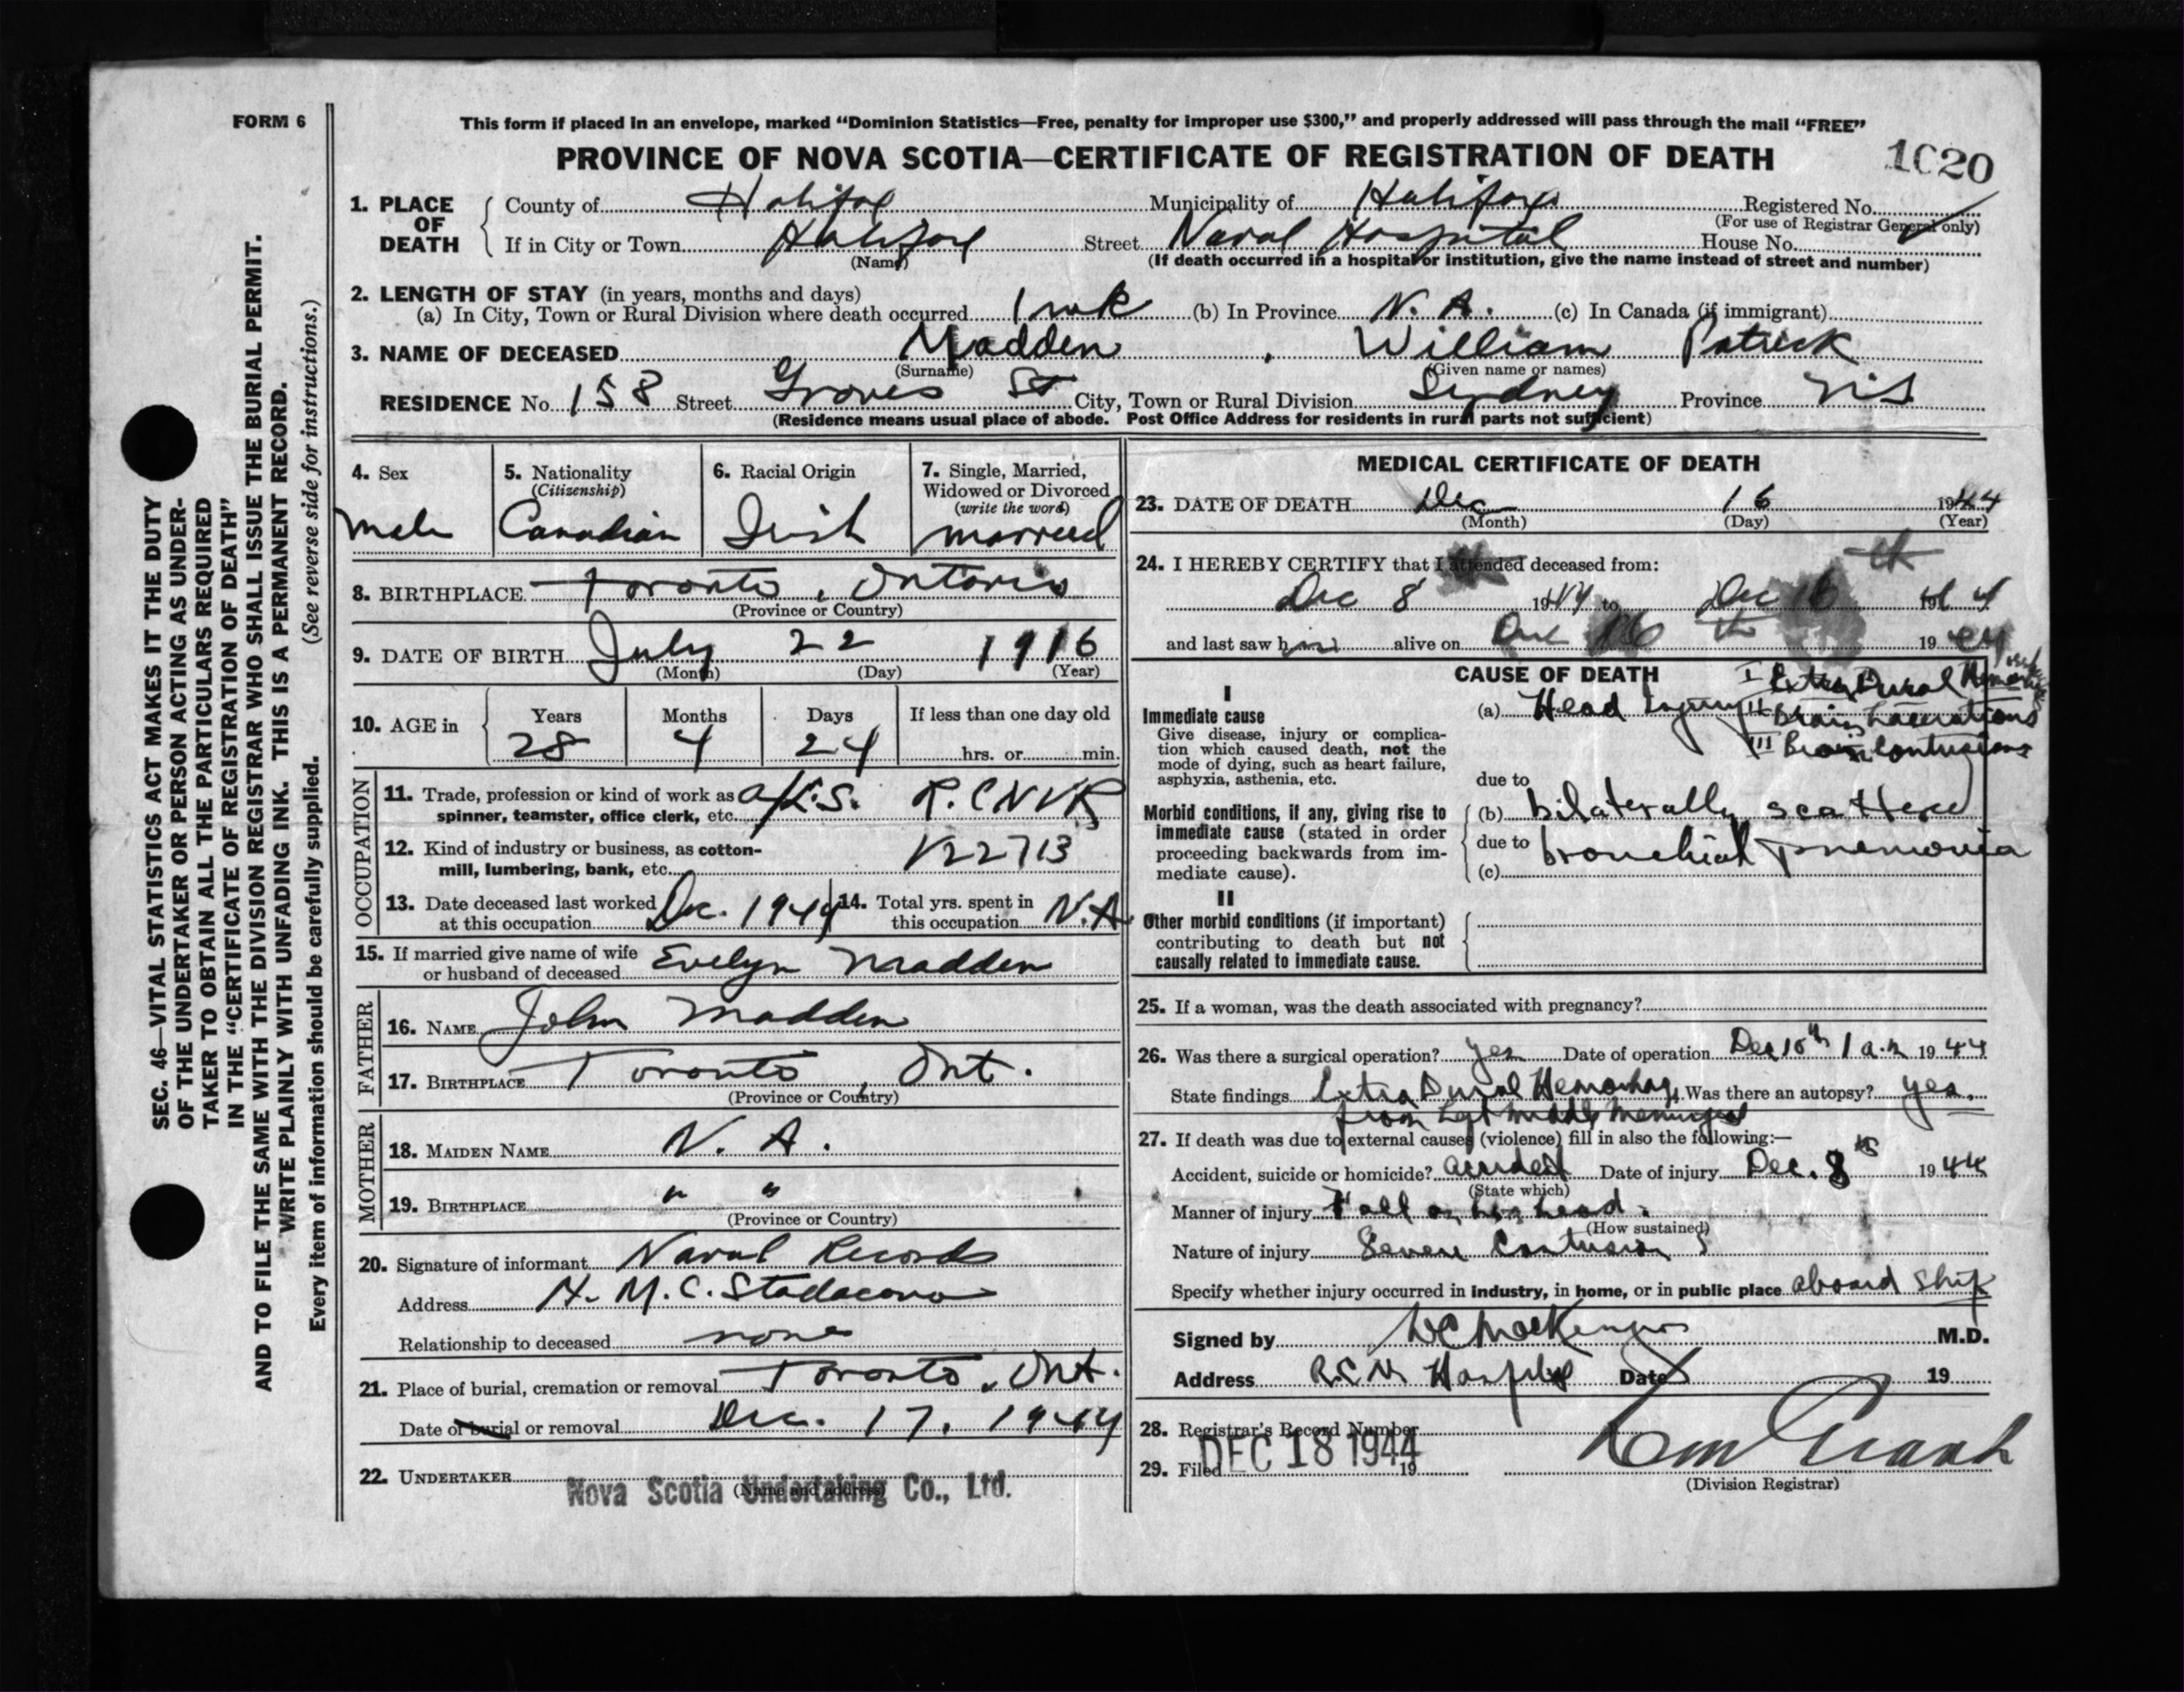 FORM 6
This form if placed in an envelope, marked “Dominion Statistics—Free, penalty for improper use $300,” and properly addressed will pass through the mail “FREE”
PROVINCE OF NOVA SCOTIA—CERTIFICATE OF REGISTRATION OF DEATH
1020
1. PLACE OF DEATH
County of Halifax Municipality of Halifax Registered No.
(For use of Registrar General only)
If in City or Town Halifax Street Naval Hospital House No.
(Name) (If death occurred in a hospital or institution, give the name instead of street and number)
2. LENGTH OF STAY (in years, months and days)
(a) In City, Town or Rural Division where death occurred 1 wk (b) In Province N. A. (c) In Canada (if immigrant)
3. NAME OF DECEASED Madden, William Patrick
(Surname) (Given name or names)
RESIDENCE No. 158 Street Groves St City, Town or Rural Division Sydney Province N.S.
(Residence means usual place of abode. Post Office Address for residents in rural parts not sufficient)
4. Sex
male
5. Nationality
(Citizenship)
Canadian
6. Racial Origin
Irish
7. Single, Married,
Widowed or Divorced
(write the word)
married
8. BIRTHPLACE Toronto, Ontario
(Province or Country)
9. DATE OF BIRTH July 22 1916
(Month) (Day) (Year)
10. AGE in
Years Months Days If less than one day old
28 4 24 hrs. or min.
OCCUPATION
11. Trade, profession or kind of work as
spinner, teamster, office clerk, etc. R.C.N.V.R
12. Kind of industry or business, as cotton-
mill, lumbering, bank, etc. V22713
13. Date deceased last worked
at this occupation Dec. 1944
14. Total yrs. spent in
this occupation N.A.
15. If married give name of wife
or husband of deceased Evelyn Madden
FATHER
16. NAME John Madden
17. BIRTHPLACE Toronto, Ont.
(Province or Country)
MOTHER
18. MAIDEN NAME N. A.
19. BIRTHPLACE " "
(Province or Country)
20. Signature of informant Naval Records
Address H. M. C. Stadacona
Relationship to deceased none
21. Place of burial, cremation or removal Toronto, Ont.
Date of burial or removal Dec. 17, 1944
22. UNDERTAKER
(Name and address)
Nova Scotia Undertaking Co., Ltd.
MEDICAL CERTIFICATE OF DEATH
23. DATE OF DEATH Dec 16 1944
(Month) (Day) (Year)
24. I HEREBY CERTIFY that I attended deceased from:
Dec 8 1944 to Dec 16th 1944
and last saw him alive on Dec 16 th 1944
CAUSE OF DEATH
I
Immediate cause
Give disease, injury or complica-
tion which caused death, not the
mode of dying, such as heart failure,
asphyxia, asthenia, etc.
(a) Head Injury
I Extra Dural Hemorrhage
II Brain Lacerations
III Brain Contusions
due to
Morbid conditions, if any, giving rise to
immediate cause (stated in order
proceeding backwards from im-
mediate cause).
(b) bilaterally scattered
due to bronchial pnemonia
(c)
II
Other morbid conditions (if important)
contributing to death but not
causally related to immediate cause.
25. If a woman, was the death associated with pregnancy?
26. Was there a surgical operation? yes Date of operation Dec 10th 1 a.m 1944
State findings Extra Dural Hemorrhage Was there an autopsy? yes.
from middle meningeal
27. If death was due to external causes (violence) fill in also the following:—
Accident, suicide or homicide? accident Date of injury Dec. 8th 1944
(State which)
Manner of injury Fall on his head.
(How sustained)
Nature of injury Severe Contusions
Specify whether injury occurred in industry, in home, or in public place aboard ship
Signed by W C MacKenzie M.D.
Address R.C.N. Hospital Date 19
28. Registrar's Record Number
29. Filed DEC 18 1944 19
(Division Registrar)
SEC. 46—VITAL STATISTICS ACT MAKES IT THE DUTY
OF THE UNDERTAKER OR PERSON ACTING AS UNDER-
TAKER TO OBTAIN ALL THE PARTICULARS REQUIRED
IN THE “CERTIFICATE OF REGISTRATION OF DEATH”
AND TO FILE THE SAME WITH THE DIVISION REGISTRAR WHO SHALL ISSUE THE BURIAL PERMIT.
WRITE PLAINLY WITH UNFADING INK. THIS IS A PERMANENT RECORD.
Every item of information should be carefully supplied. (See reverse side for instructions.)